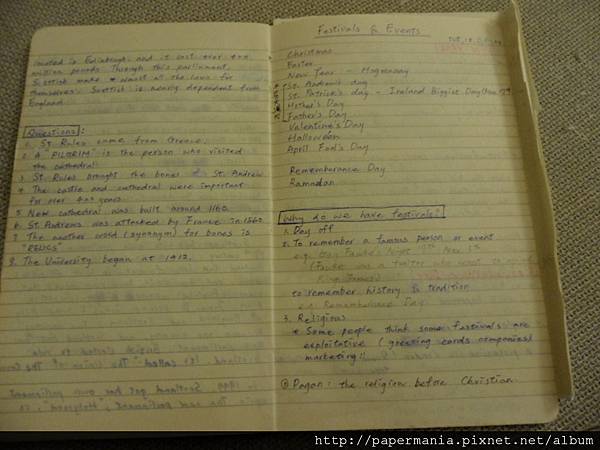 located is Edinburgh and it cost over
million pounds. Through this parliament,
Scottish make most all the laws for
themselves. Scottish is nearly dependent from
England
Questions:
1. St. Rules came from Greece.
2. A "PILGRIM" is the person who visited
the cathedral.
3. St. Rules brought the bones St. Andrew
4. The castle and cathedral were important
for over 400 years
5. New cathedral was built around 1160.
6. St. Andrews was attacked by France in 1560.
7. The another word (synonym) for bones is
"RELICS"
8. The University began at 1412.
Festivals & Events
Christmas
Easter
New Year - Hogmanay
St. Andrew's day
St. Patrick's day - Ireland Biggist Day
Mother's Day
Father's Day
Valentine's Day
Halloween
April Fool's Day
Rememberance Day
Ramadan
Why do we have festivals?
1. Day off
2. To remember a famous person or event
e.g. Guy Fawke's Night
(Fawke was a traitor who want to
King James)
to remember history & tradition
e.g. Rememberance Day
3. Religious
* Some people think some festivals are
exploitative (greeting cards companies/
marketing)
Pagan: the religion before Christian
http://papermania.pixnet.net/album